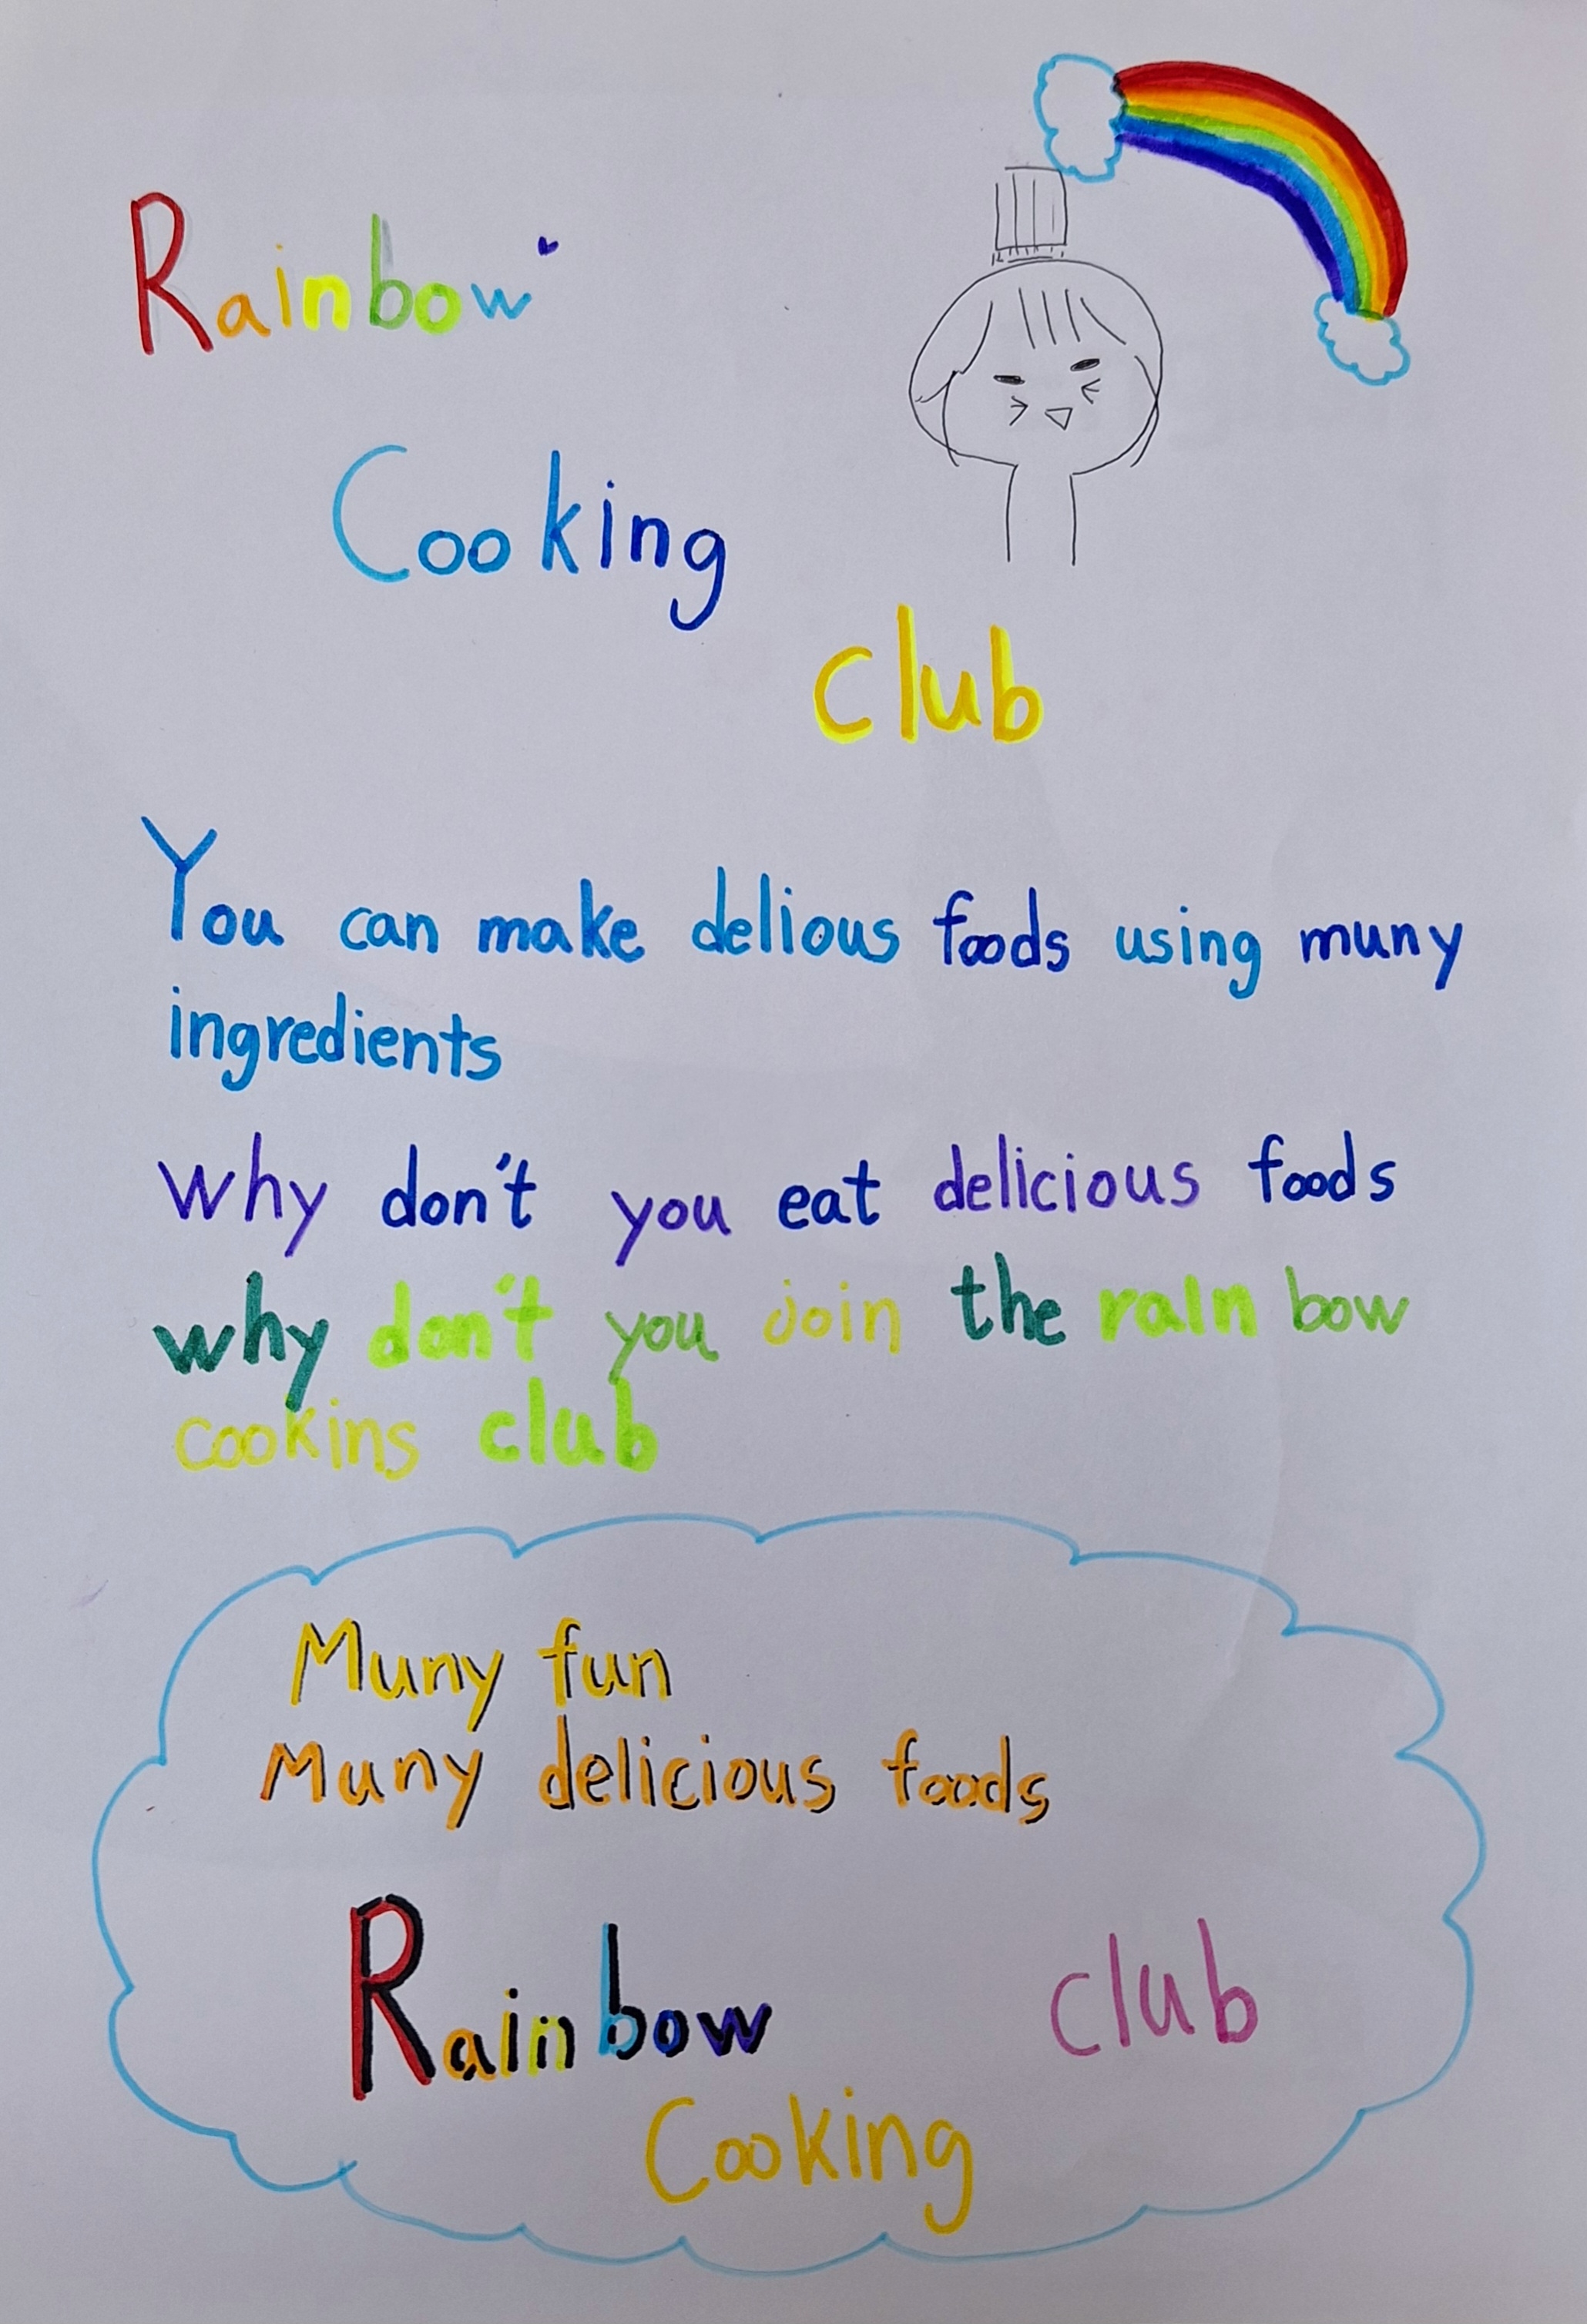 Rainbow
Cooking
club
You can make delious foods using muny
ingredients
Why don't you eat delicious foods
why don't you join the rain bow
cookins club
Muny fun
Muny delicious foods
Rainbow club
Cooking